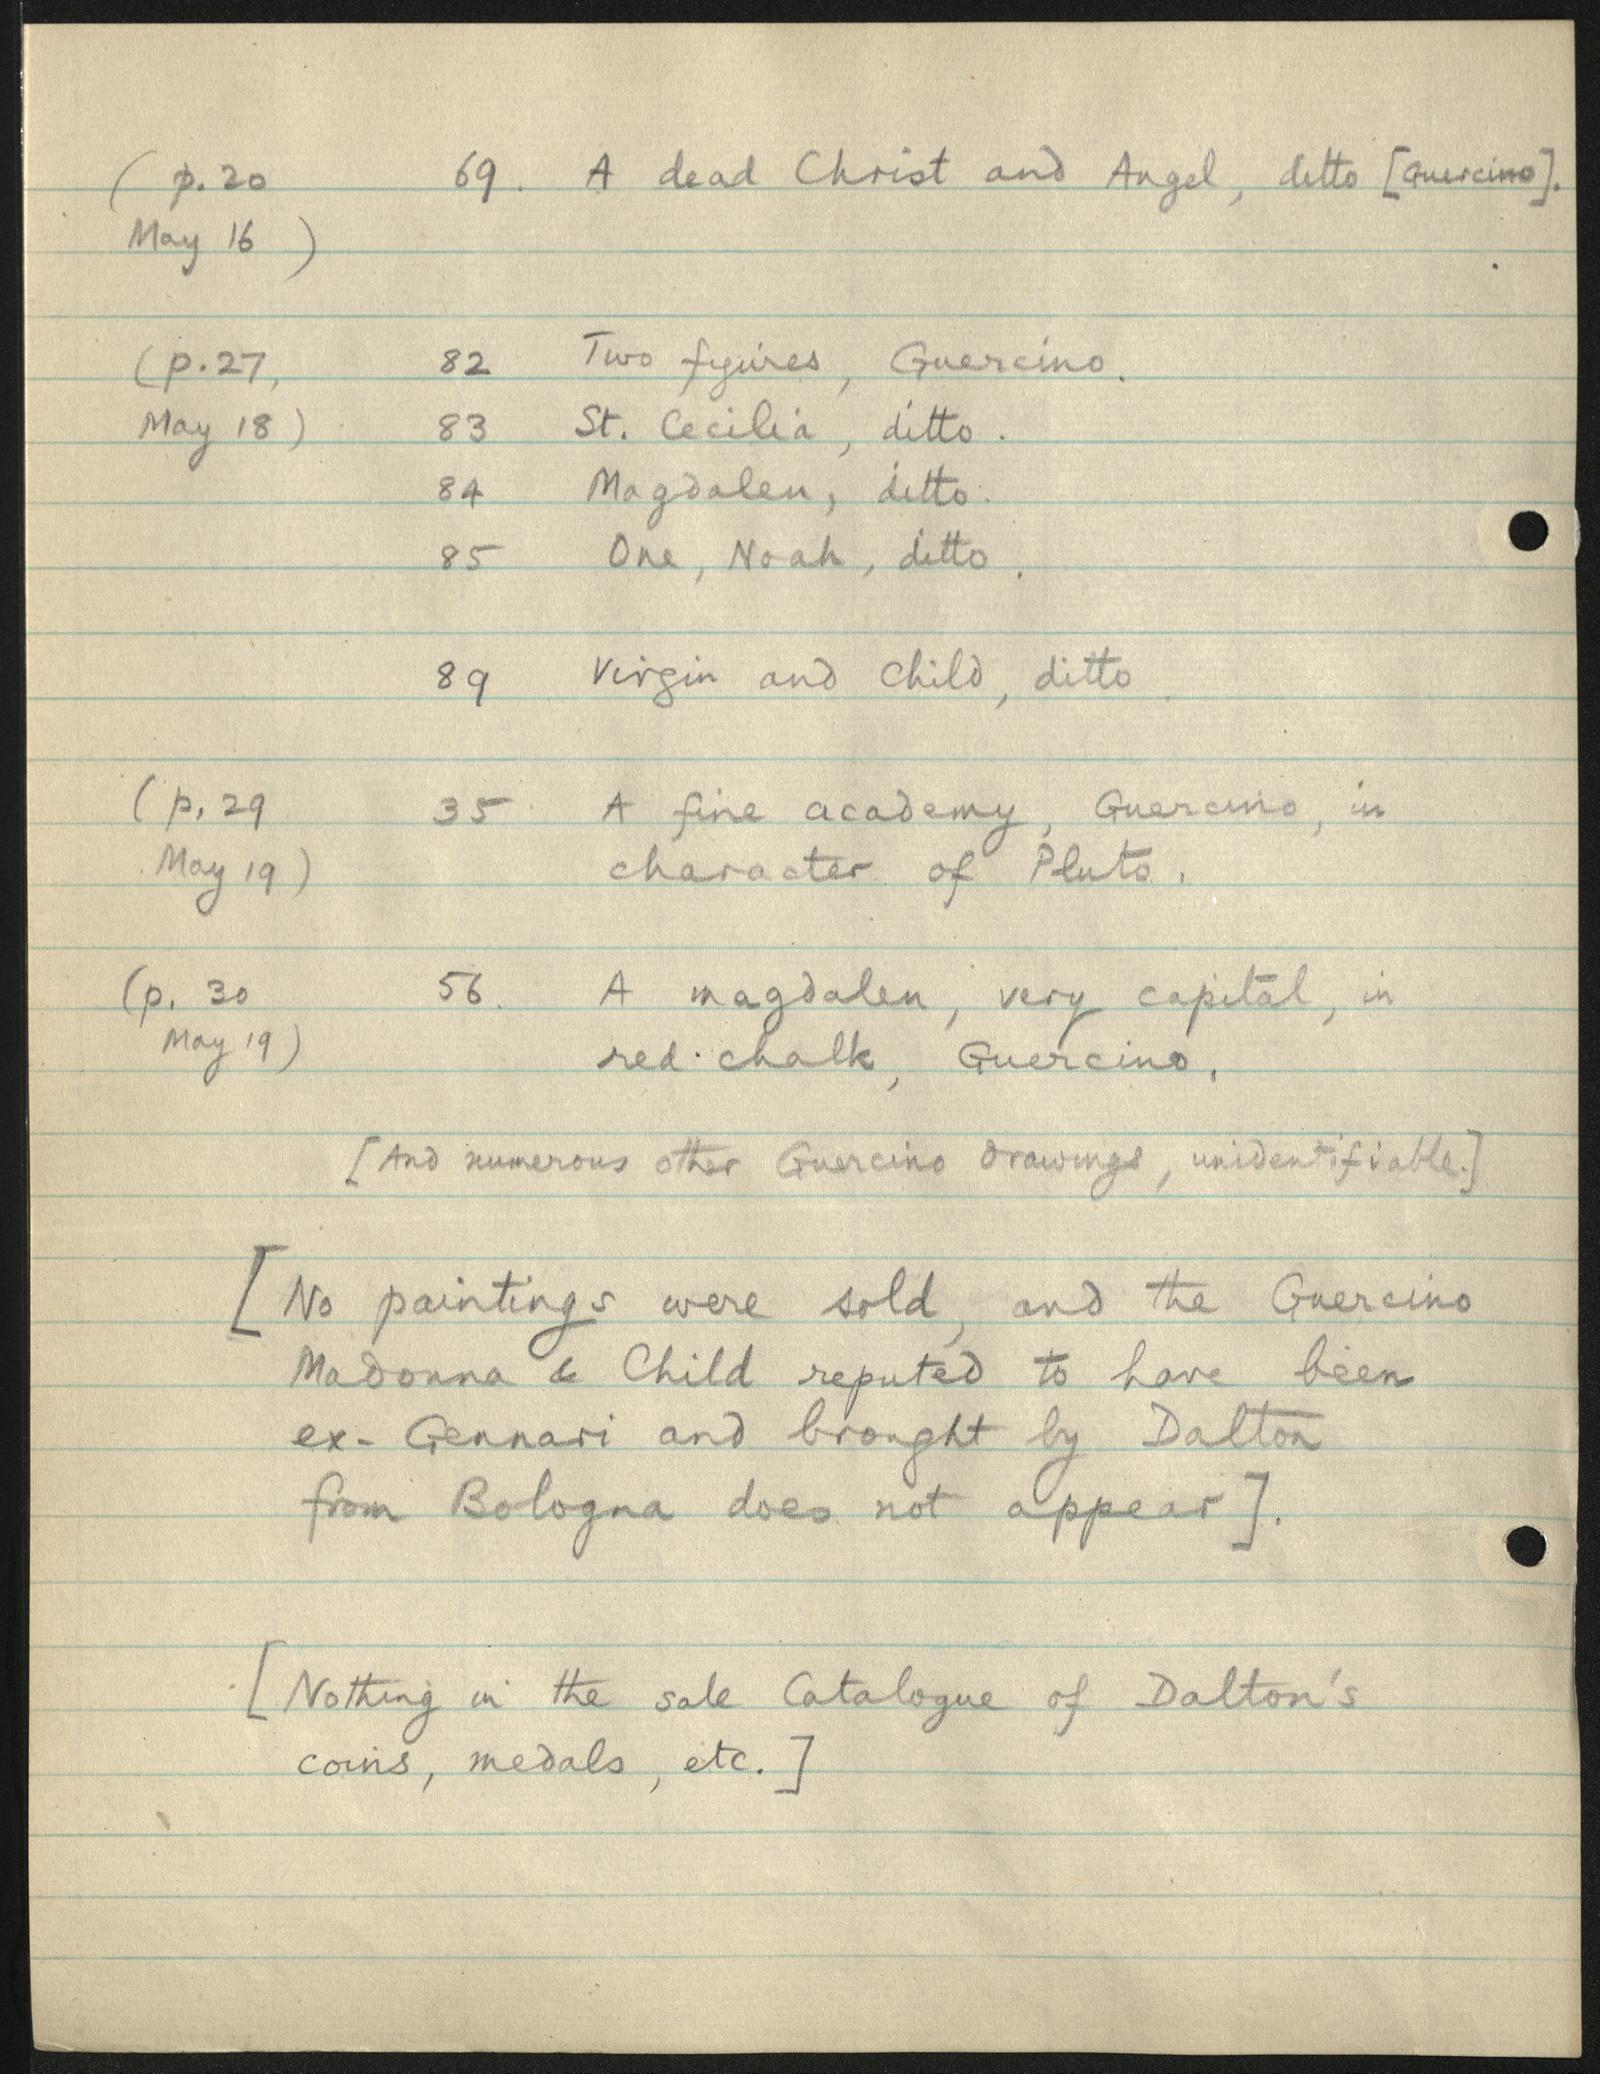 ( p. 20 69. A dead Christ and Angel, ditto [Guercino].
May 16 )
( p. 27, 82 Two figures, Guercino.
May 18 ) 83 St. Cecilia, ditto.
84 Magdalen, ditto.
85 One, Noah, ditto.
89 Virgin and Child, ditto.
( p. 29 35 A fine academy, Guercino, in
May 19 ) character of Pluto.
(p. 30 56. A magdalen, very capital, in
May 19 ) red chalk, Guercino.
[And numerous other Guercino drawings, unidentifiable.]
[No paintings were sold, and the Guercino
Madonna & Child reputed to have been
ex-Gennari and brought by Dalton
from Bologna does not appear].
[Nothing in the sale Catalogue of Dalton's
coins, medals, etc.]